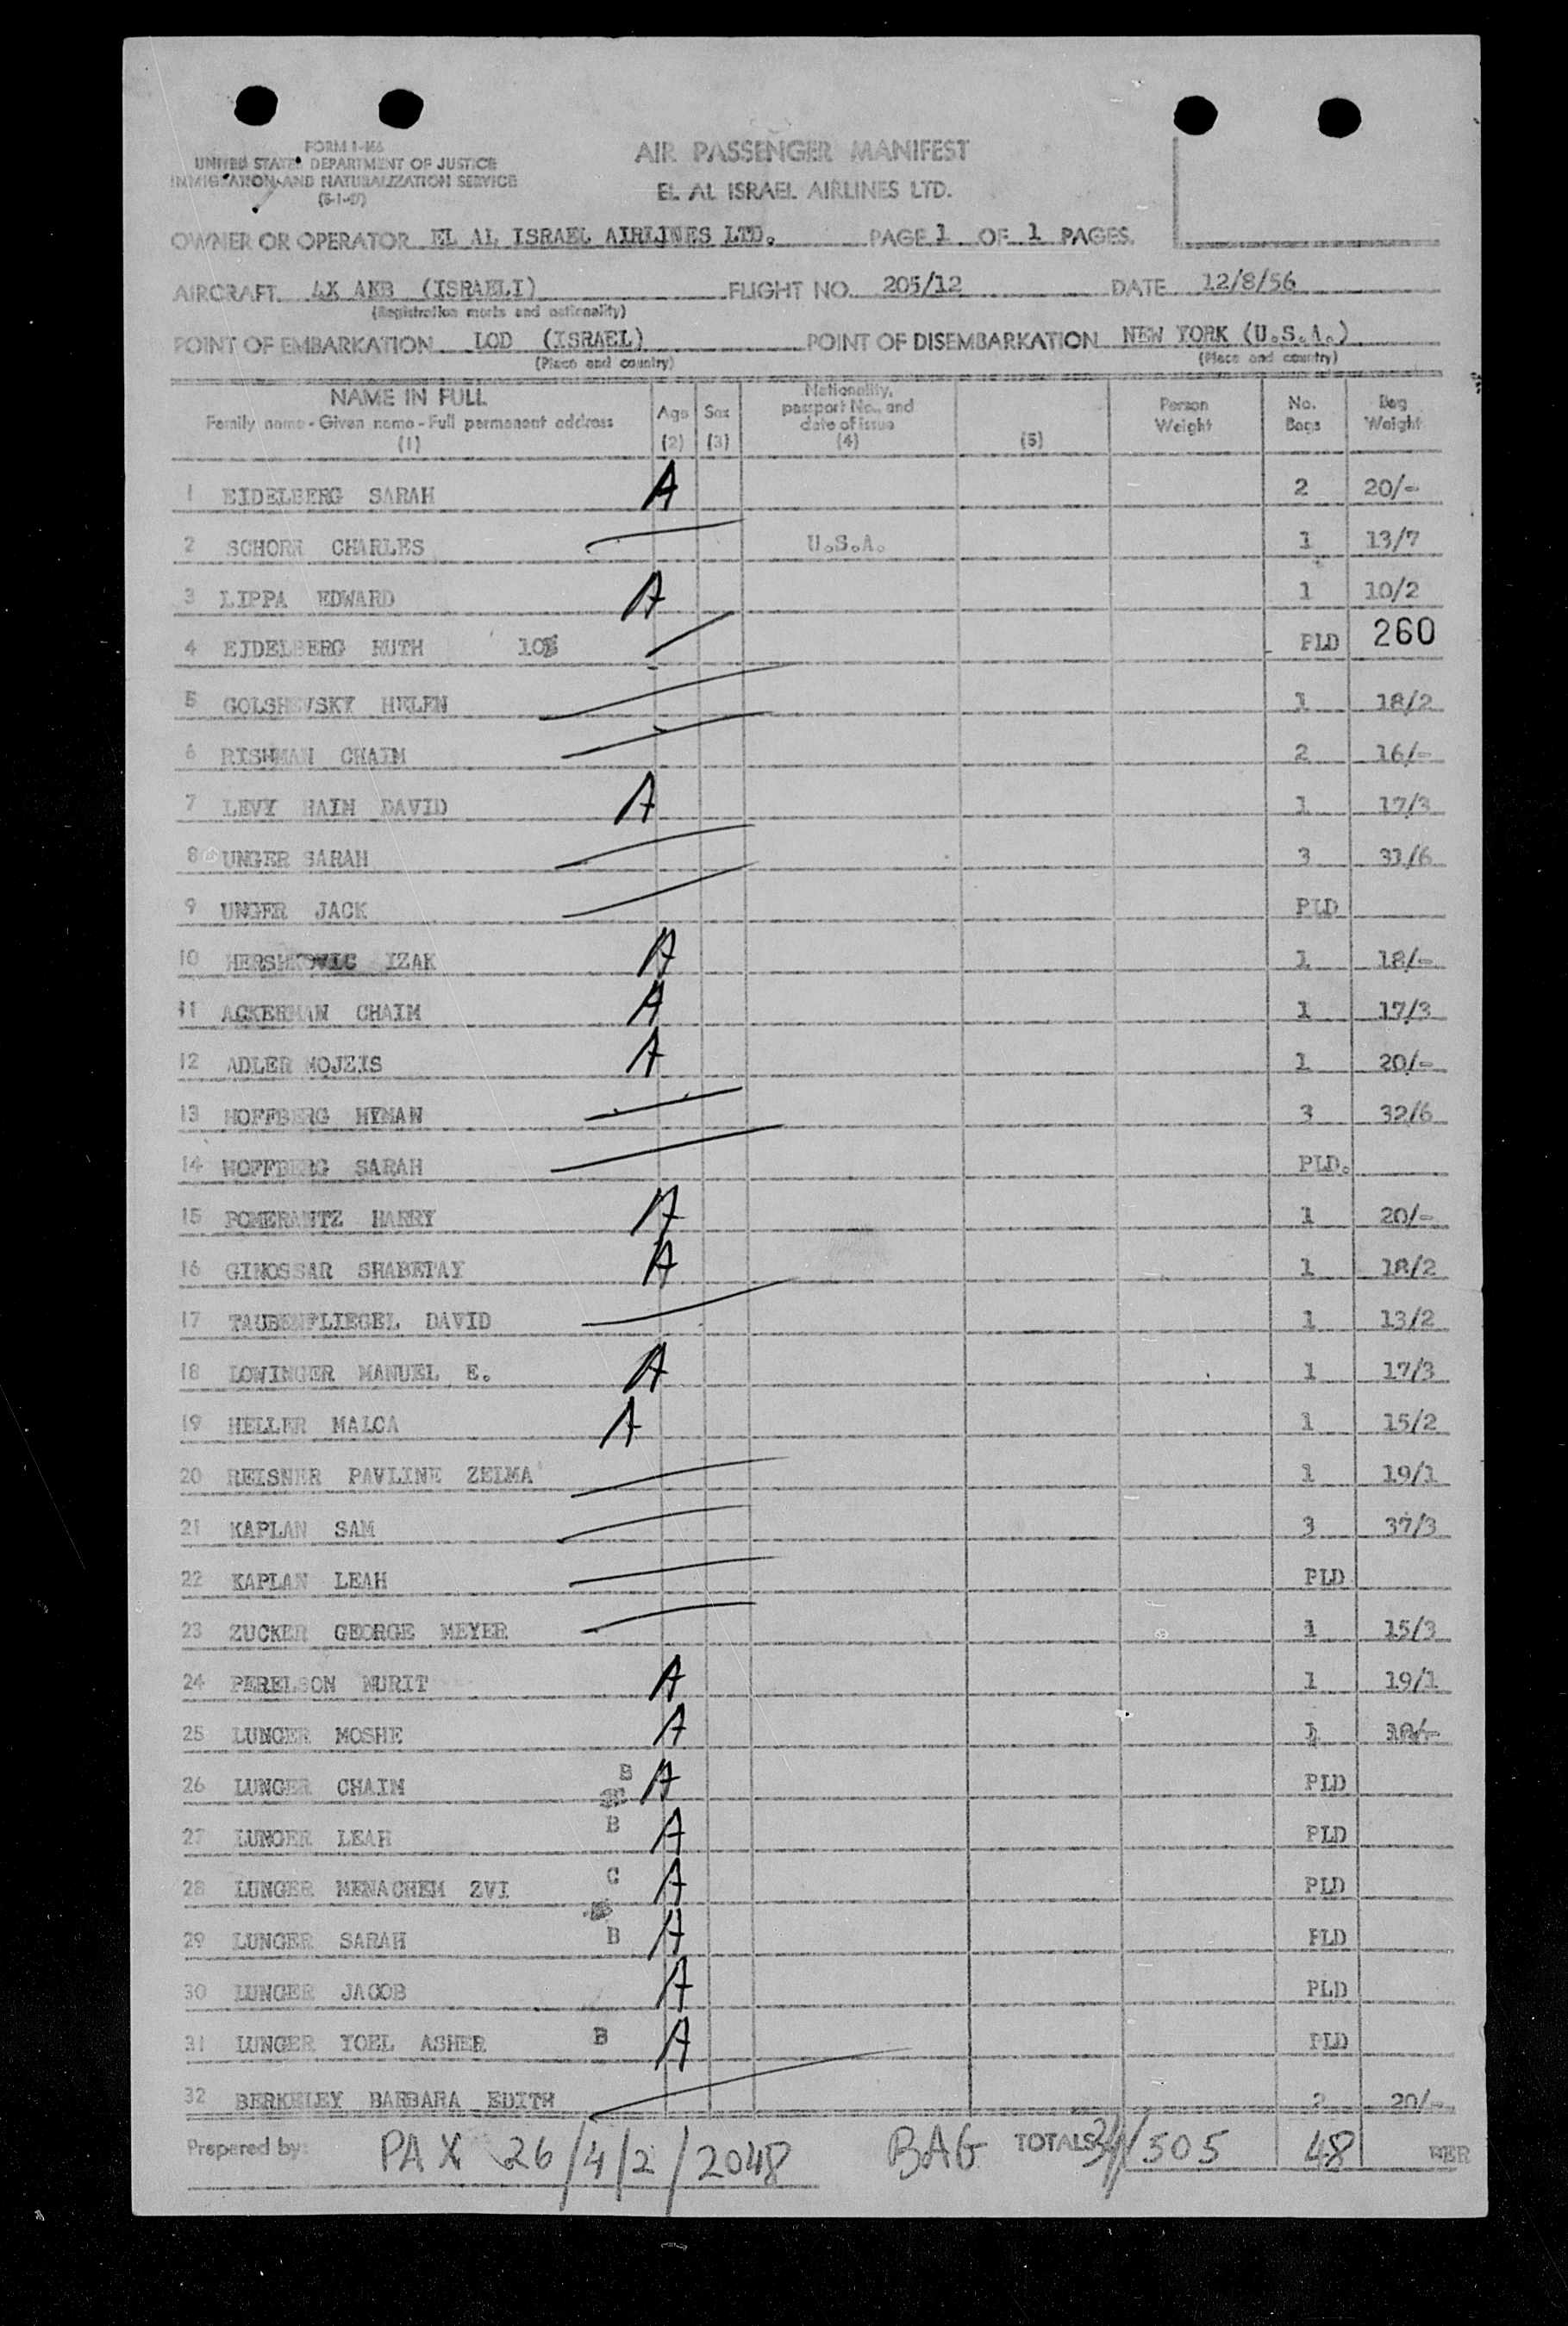 FORM I-466
UNITED STATES DEPARTMENT OF JUSTICE
IMMIGRATION AND NATURALIZATION SERVICE
AIR PASSENGER MANIFEST
EL AL ISRAEL AIRLINES LTD.
OWNER OR OPERATOR EL AL ISRAEL AIRLINES LTD. PAGE 1 OF 1 PAGES.
AIRCRAFT 4X AKB (ISRAELI) FLIGHT NO. 205/12 DATE 12/8/56
(Registration marks and nationality)
POINT OF EMBARKATION LOD (ISRAEL) POINT OF DISEMBARKATION NEW YORK (U.S.A.)
(Place and country) (Place and country)
NAME IN FULL Age Sex Nationality, passport No., and date of issue Person Weight No. Bags Bag Weight
Family name - Given name - Full permanent address
(1) (2) (3) (4) (5)
1 EIDELBERG SARAH A 2 20/-
2 SCHORR CHARLES U.S.A. 1 13/7
3 LIPPA EDWARD A 1 10/2
4 EIDELBERG RUTH PLD 260
5 GOLSHEVSKY HELEN 1 18/2
6 RISHMAN CHAIM 2 16/-
7 LEVY HAIM DAVID A 1 17/3
8 UNGER SARAH 3 31/6
9 UNGER JACK PLD
10 HERSHKOVIC IZAK A 1 18/-
11 ACKERMAN CHAIM A 1 17/3
12 ADLER MOJZIS A 1 20/-
13 HOFFBERG HYMAN 3 32/6
14 HOFFBERG SARAH PLD.
15 POMERANTZ HARRY A 1 20/-
16 GINOSSAR SHABETAY A 1 18/2
17 TAUBENFLIEGEL DAVID 1 13/2
18 LOWINGER MANUEL E. A 1 17/3
19 HELLER MALCA A 1 15/2
20 REISNER PAVLINE ZELMA 1 19/1
21 KAPLAN SAM 3 37/3
22 KAPLAN LEAH PLD
23 ZUCKER GEORGE MEYER 1 15/3
24 PERELSON NURIT A 1 19/1
25 LUNGER MOSHE A 1
26 LUNGER CHAIM B A PLD
27 LUNGER LEAH B A PLD
28 LUNGER MENACHEM ZVI C A PLD
29 LUNGER SARAH B A PLD
30 LUNGER JACOB A PLD
31 LUNGER YOEL ASHER B A PLD
32 BERKELEY BARBARA EDITH 2 20/-
Prepared by: PAX 26/4/2/2048 BAG TOTALS 34/505 48